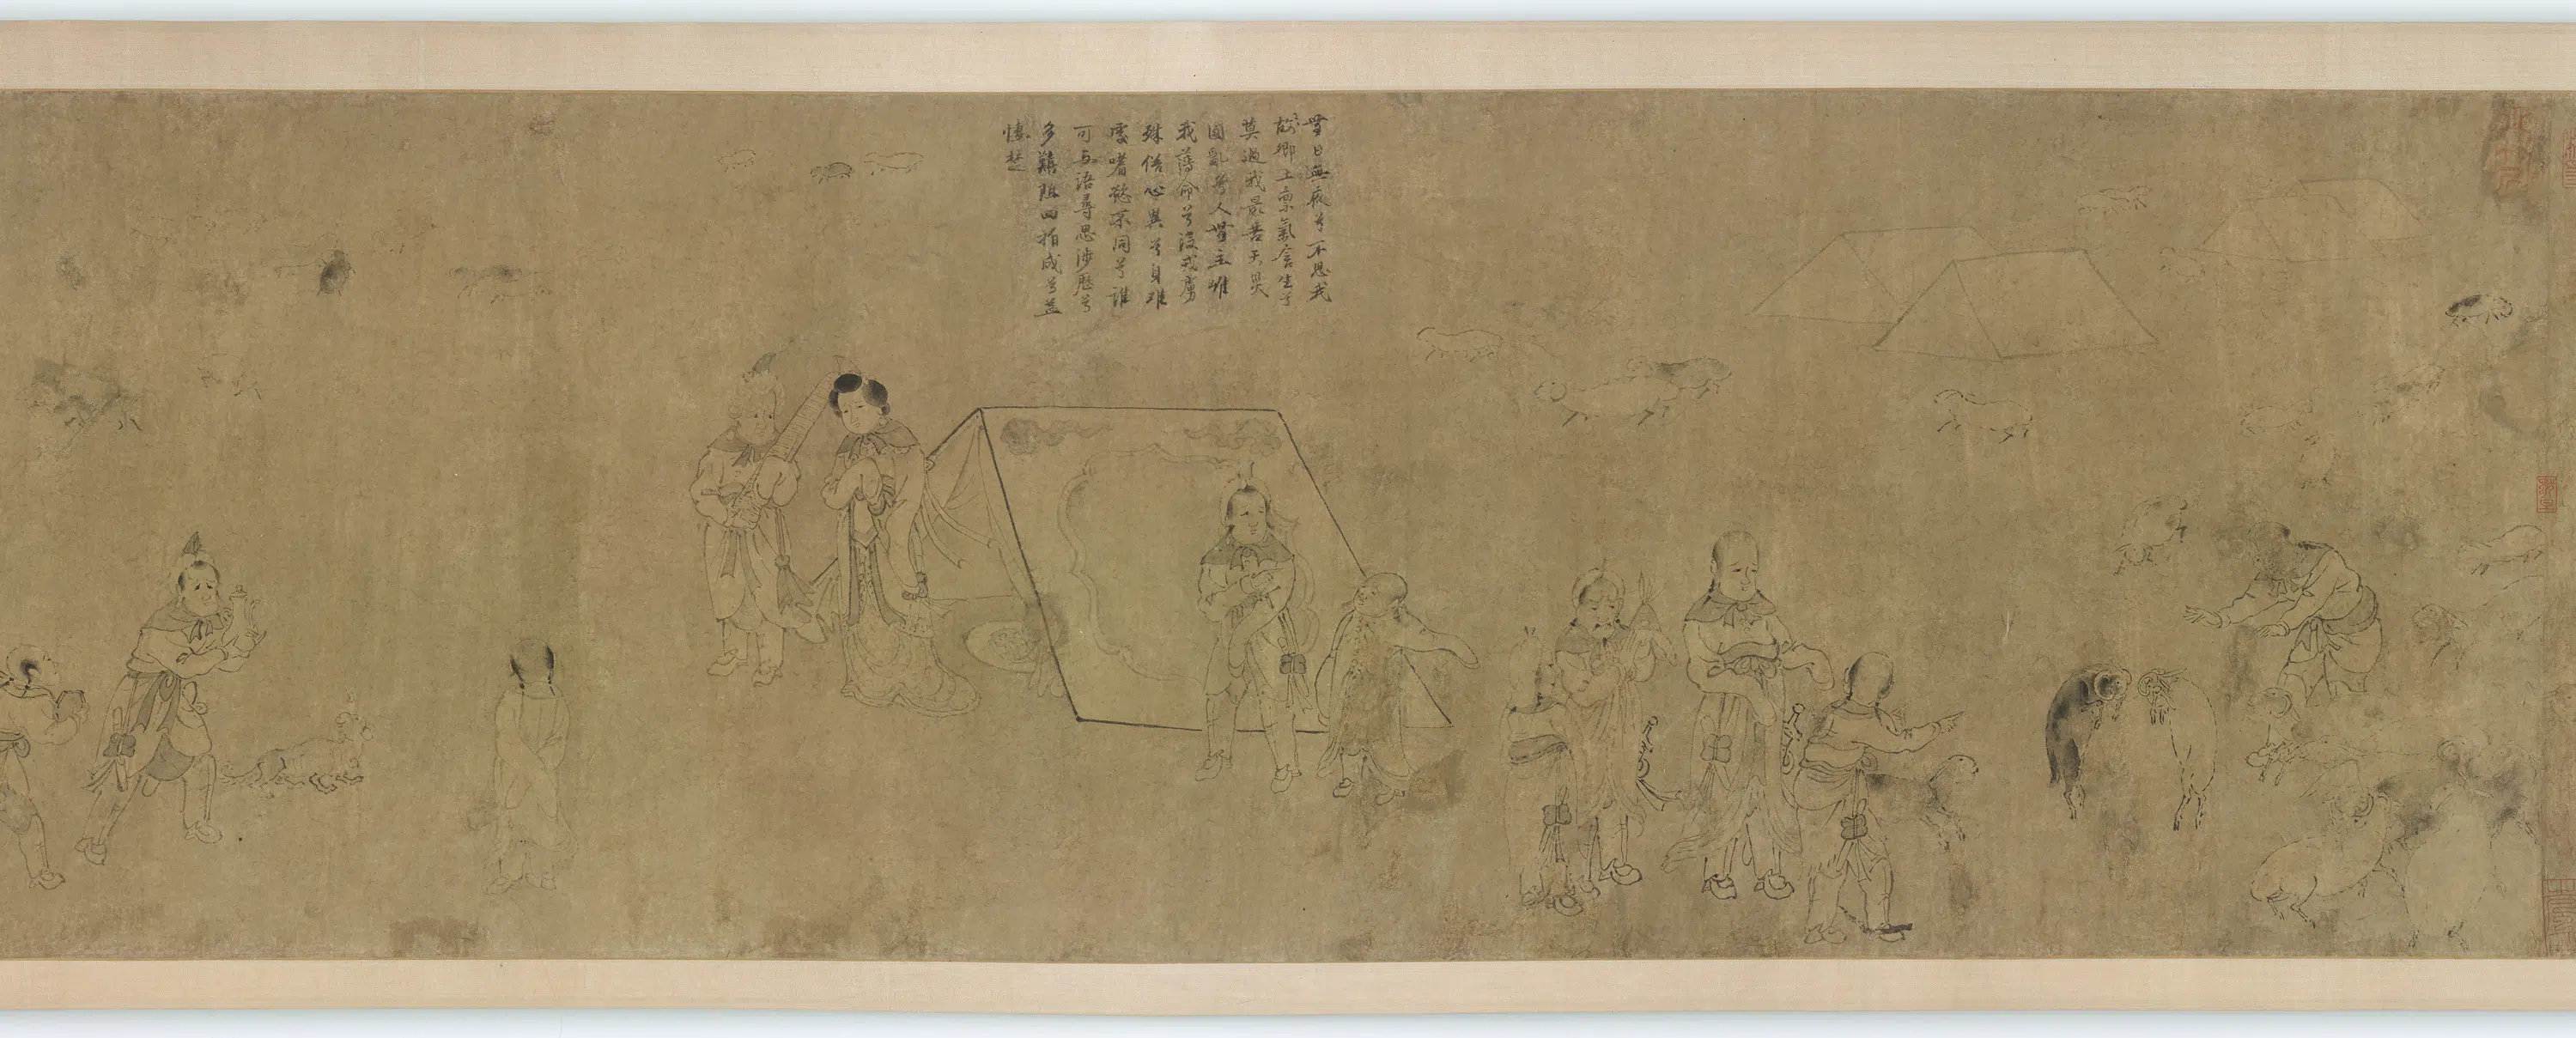 無日無夜兮不思我
故鄉土禀氣含生兮
莫過我最苦天災
國亂兮人無主唯
我薄命兮沒戎虜
殊俗心異兮身难
處嗜慾不同兮誰
可与語尋思涉歷兮
多難阻四拍成兮益
悽楚